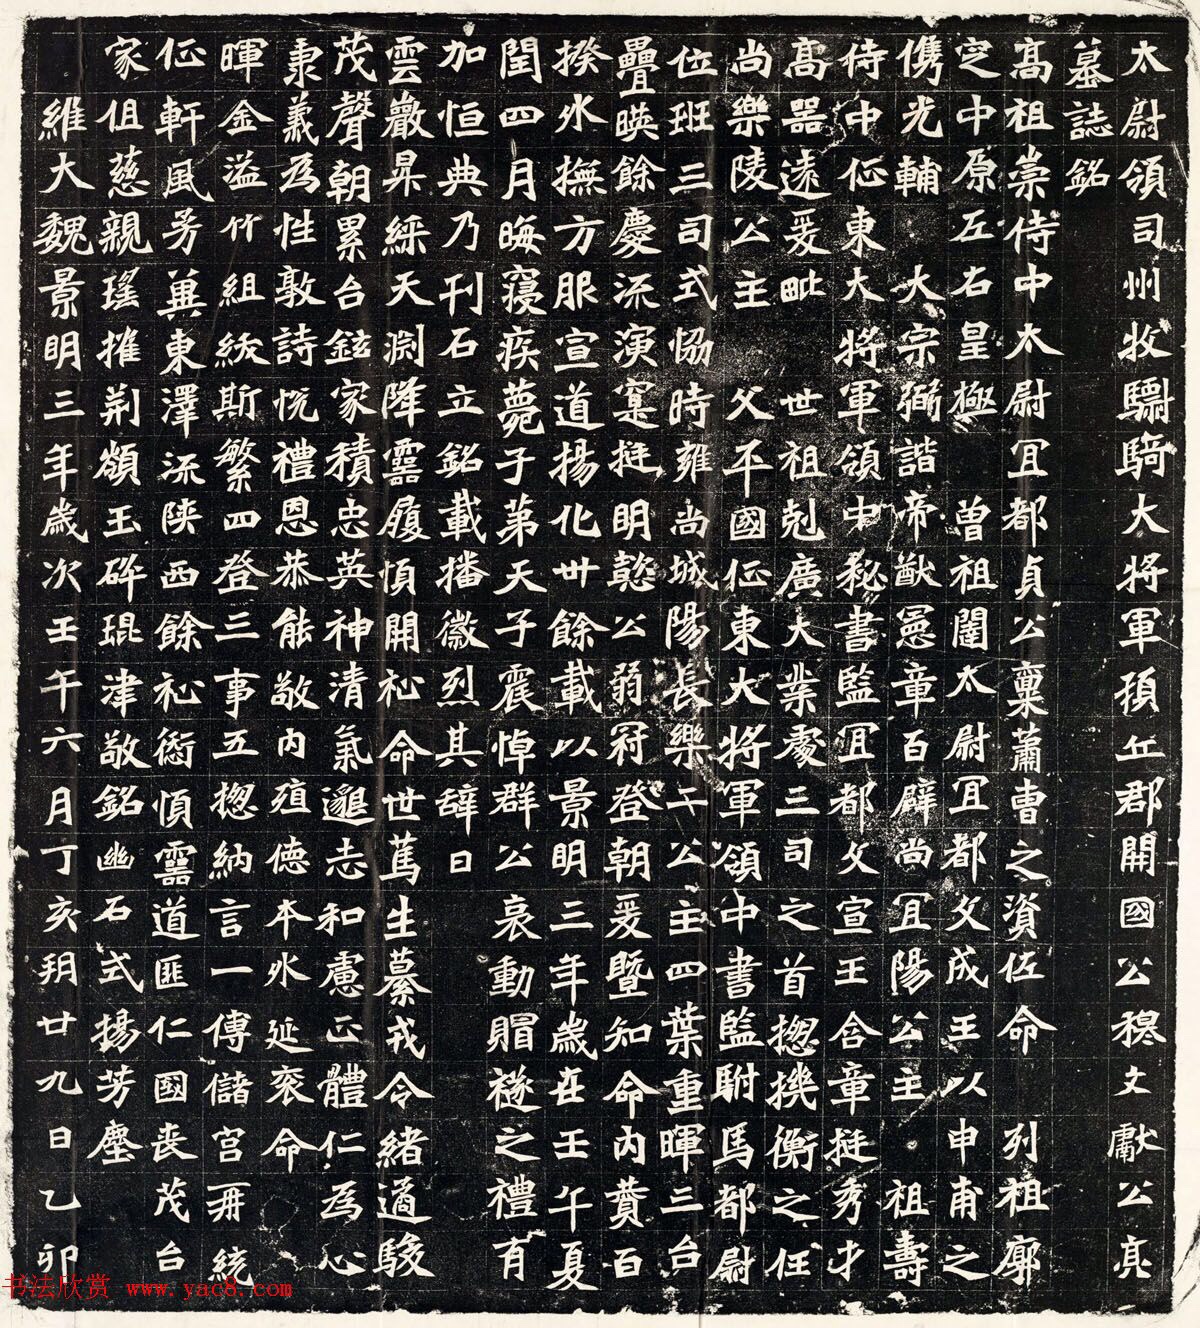 太尉領司州牧驃騎大將軍頓丘郡開國公穆文獻公亮
墓誌銘
高祖崇侍中太尉冝都貞公稟蕭曺之資佐命 列祖廓
㝎中原左右皇極 曽祖闥太尉冝都文成王以申甫之
儁光輔 大宗弼諧帝猷憲章百辟尚冝陽公主 祖壽
侍中征東大將軍領中秘書監冝都文宣王含章挺秀才
高器遠爰毗 世祖剋廣大業處三司之首揔機衡之任
尚樂陵公主 父平國征東大將軍領中書監駙馬都尉
位班三司式恊時雍尚城陽長樂二公主四葉重暉三台
疊暎餘慶流演寔挺明懿公弱冠登朝爰暨知命內賛百
揆外撫方服宣道揚化卅餘載以景明三年歲在壬午夏
閏四月晦寢疾薨于苐天子震悼群公哀動賵襚之禮有
加恒典乃刊石立銘載播徽烈其辞曰
雲巖昇綵天淵降靈履順開祉命世萬生慕戎令緒遹駿
茂聲朝累台鉉家積忠英神清氣邈志和慮正體仁為心
秉義為性敦詩恱禮恩恭能敬內殖德本外延衮命
暉金溢竹組綬斯繁四登三事五揔納言一傅儲宫再統
征軒風芳兾東澤流陝西餘祉銜順靈道匪仁國喪茂台
家徂慈親瑤摧荆頟玉碎琨津敬銘幽石式揚芳塵
維大魏景明三年歲次壬午六月丁亥朔廿九日乙卯
书法欣赏 www.yac8.com